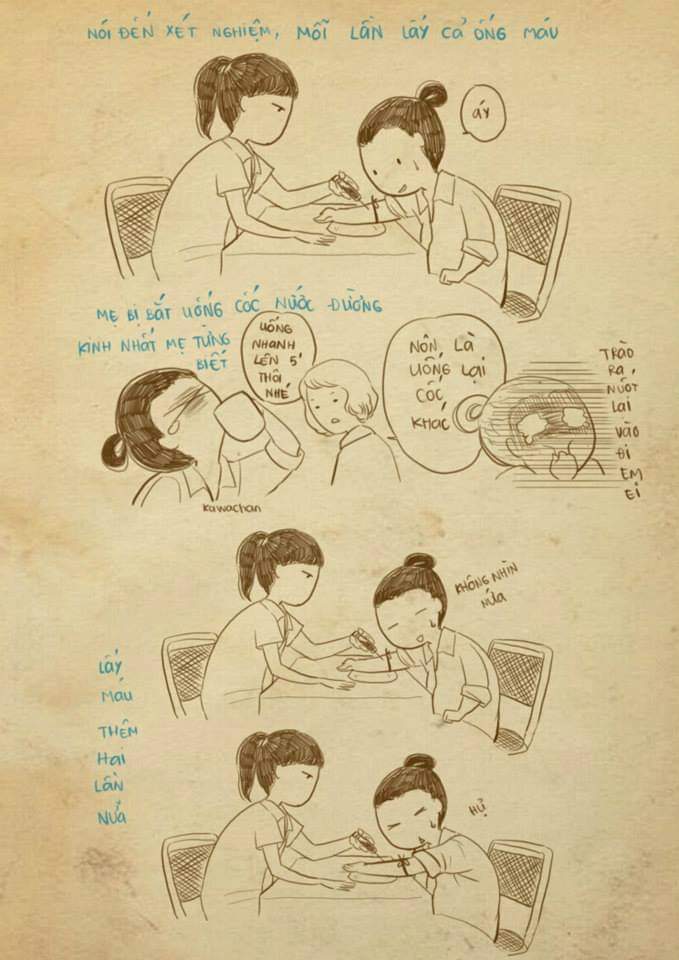 NÓI ĐẾN XÉT NGHIỆM, MỖI LẦN LẤY CẢ ỐNG MÁU
ÁY
MẸ BỊ BẮT UỐNG CỐC NƯỚC ĐƯỜNG
KINH NHẤT MẸ TỪNG
BIẾT
UỐNG
NHANH
LÊN 5'
THÔI
NHÉ
NÔN LÀ
UỐNG LẠI
CỐC
KHÁC
TRÀO
RA,
NUỐT
LẠI
VÀO
ĐI
EM
EI
kawachan
KHÔNG NHÌN
NỮA
LẤY
MÁU
THÊM
HAI
LẦN
NỮA
HỰ